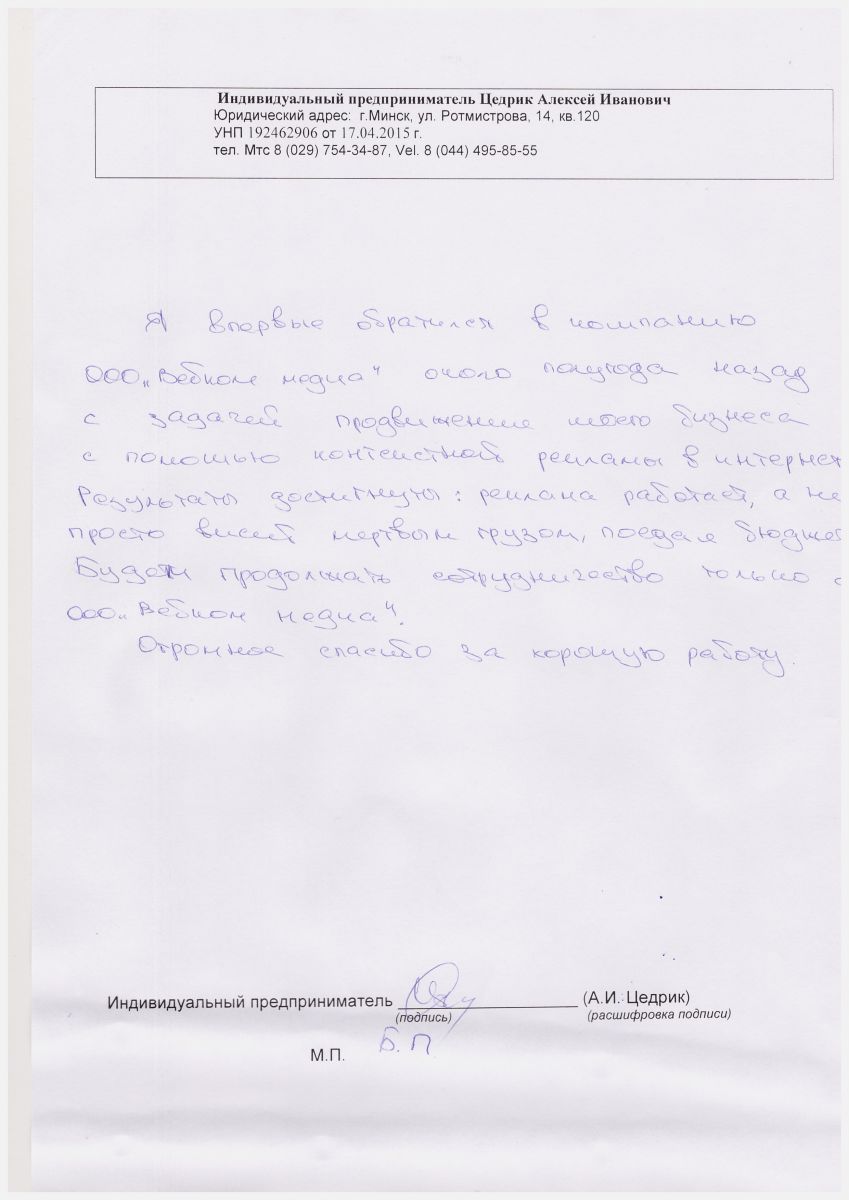 Индивидуальный предприниматель Цедрик Алексей Иванович
Юридический адрес: г.Минск, ул. Ротмистрова, 14, кв.120
УНП 192462906 от 17.04.2015 г.
тел. Мтс 8 (029) 754-34-87, Vel. 8 (044) 495-85-55
Я впервые обратился в компанию
ООО „Вебком медиа“ около полугода назад
с задачей продвижение моего бизнеса
с помощью контекстной рекламы в интернет
Результаты достигнуты: реклама работает, а не
просто висит мертвым грузом, поедая бюджет
Будем продолжать сотрудничество только с
ООО „Вебком медиа“.
Огромное спасибо за хорошую работу.
Индивидуальный предприниматель (А.И. Цедрик)
(подпись) (расшифровка подписи)
М.П. Б.П